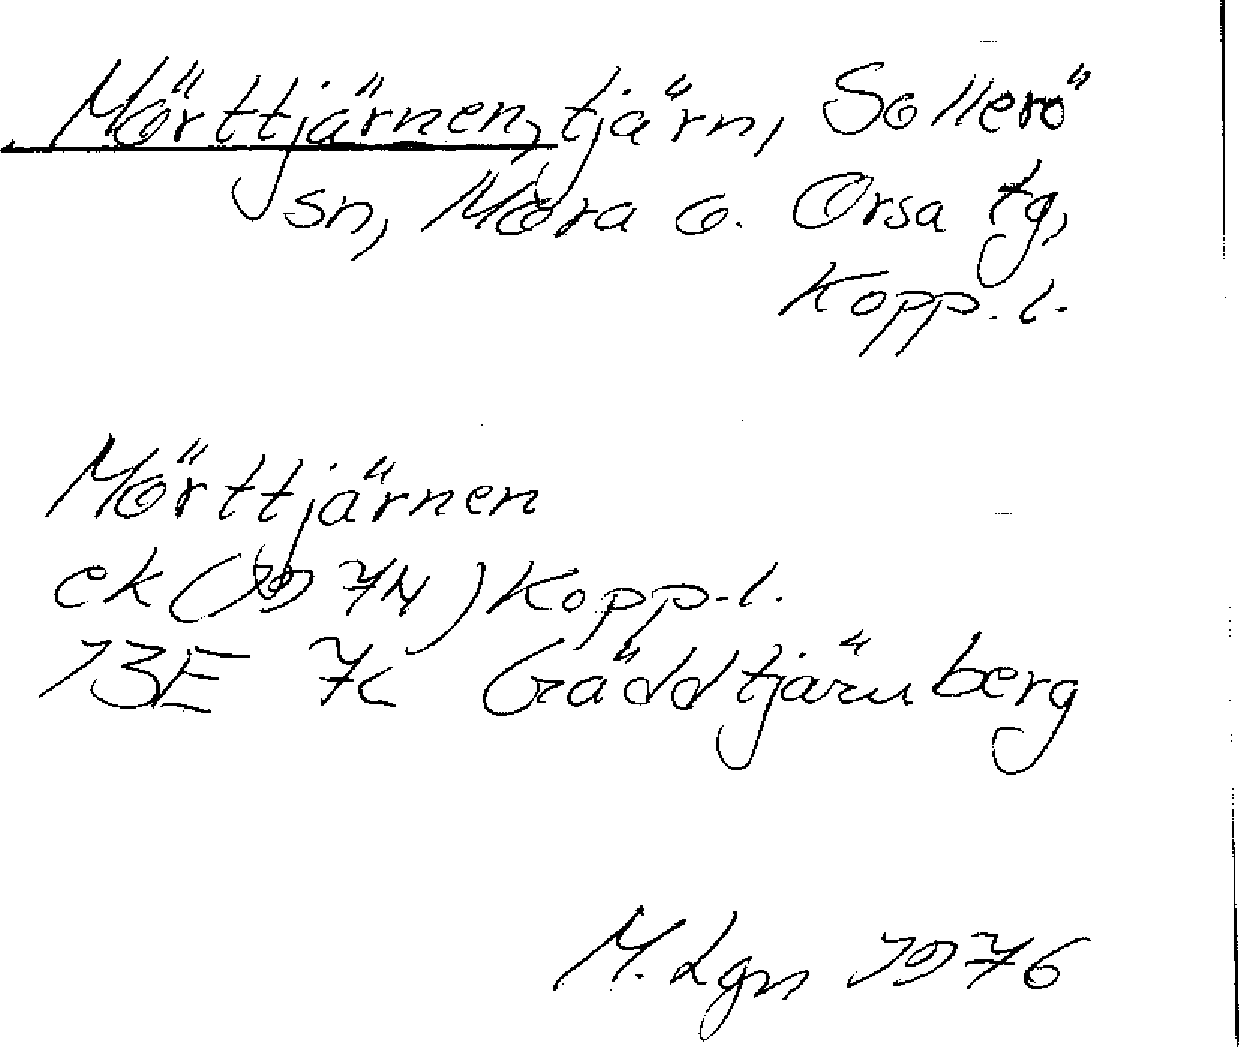 Mörttjärnen, tjärn, Sollerö
sn, Mora o. Orsa tg,
Kopp. l.
Mörttjärnen
ek (1974) Kopp. l.
13E 7c Gäddtjärnberg
M. Lgn 1976